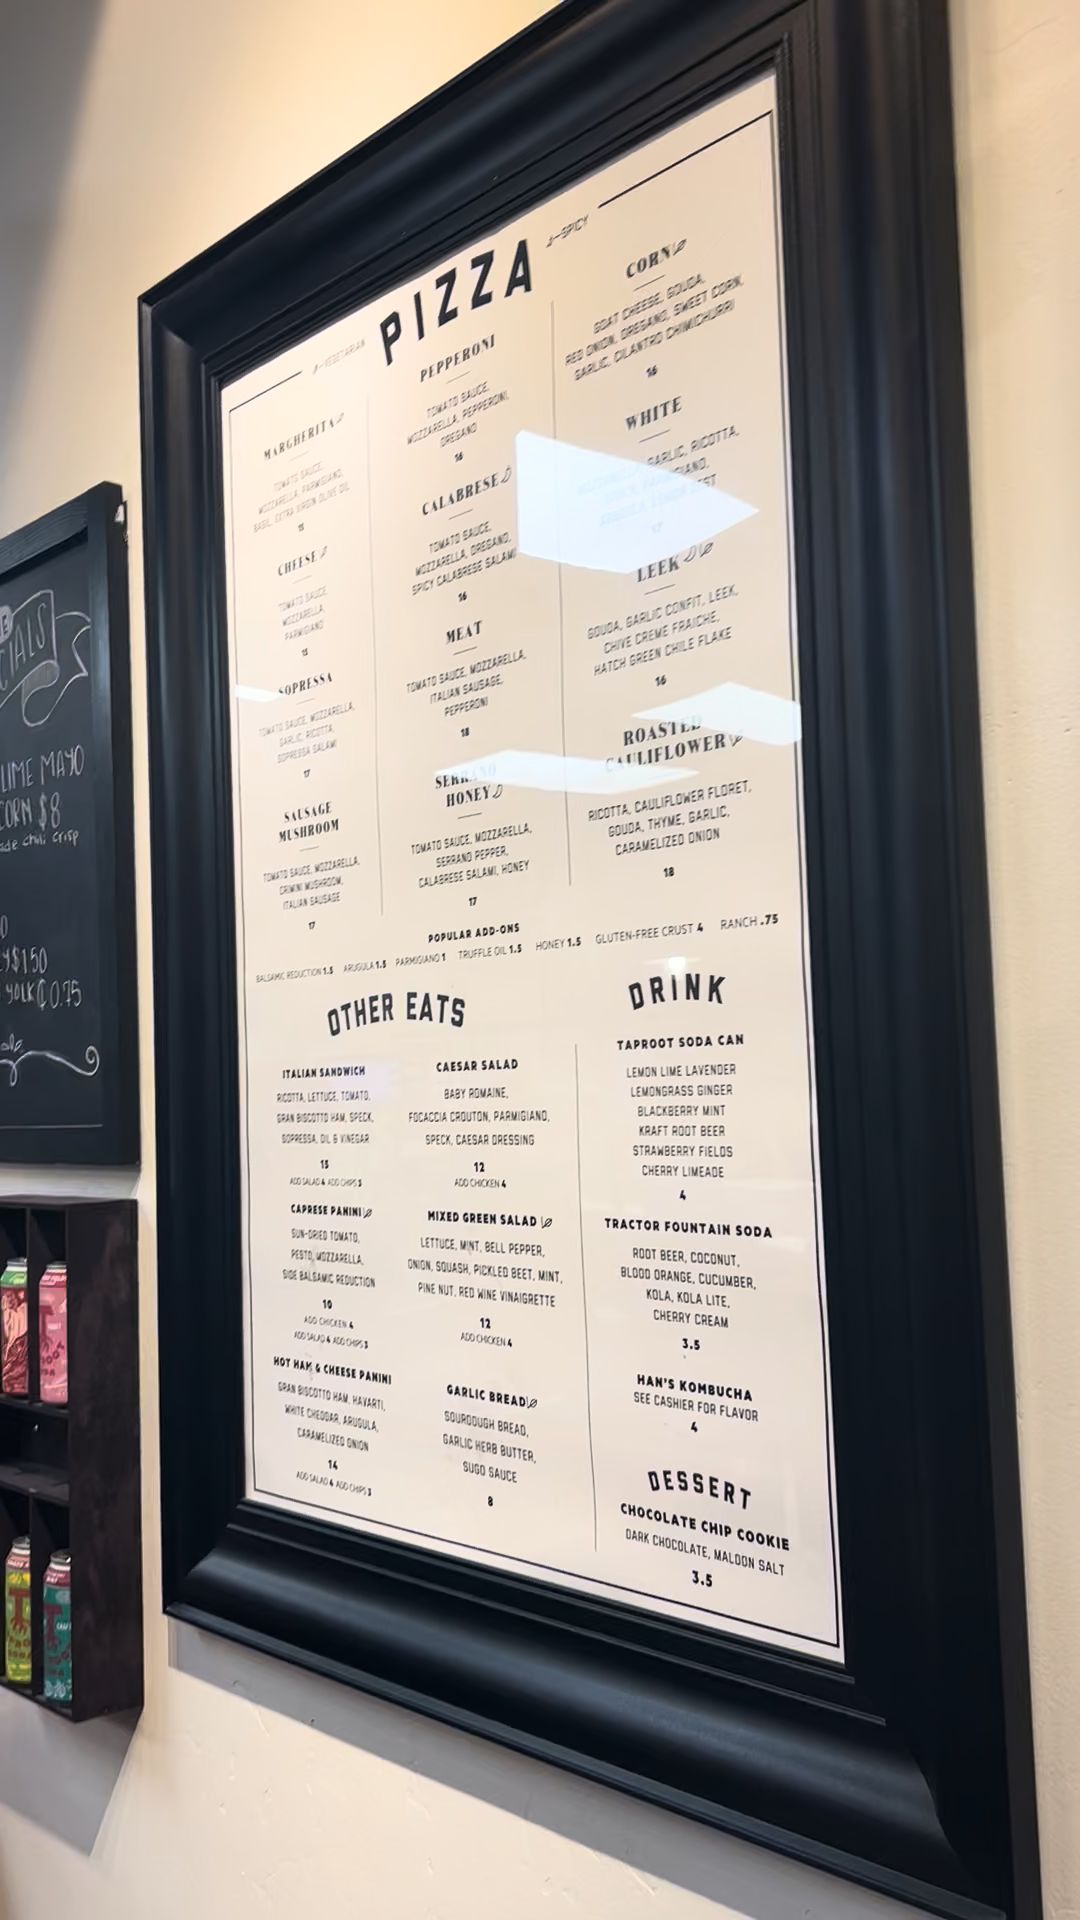 PIZZA
—VEGETARIAN
—SPICY
MARGHERITA
TOMATO SAUCE,
MOZZARELLA, PARMIGIANO,
BASIL, EXTRA VIRGIN OLIVE OIL
CHEESE
TOMATO SAUCE
MOZZARELLA,
PARMIGIANO
SOPRESSA
TOMATO SAUCE, MOZZARELLA,
GARLIC, RICOTTA,
SOPRESSA SALAMI
17
SAUSAGE
MUSHROOM
TOMATO SAUCE, MOZZARELLA,
CRIMINI MUSHROOM,
ITALIAN SAUSAGE
17
PEPPERONI
TOMATO SAUCE,
MOZZARELLA, PEPPERONI,
OREGANO
16
CALABRESE
TOMATO SAUCE,
MOZZARELLA, OREGANO,
SPICY CALABRESE SALAMI
16
MEAT
TOMATO SAUCE, MOZZARELLA,
ITALIAN SAUSAGE,
PEPPERONI
18
SERRANO
HONEY
TOMATO SAUCE, MOZZARELLA,
SERRANO PEPPER,
CALABRESE SALAMI, HONEY
17
CORN
GOAT CHEESE, GOUDA,
RED ONION, OREGANO, SWEET CORN,
GARLIC, CILANTRO CHIMICHURRI
16
WHITE
GARLIC, RICOTTA,
17
LEEK
GOUDA, GARLIC CONFIT, LEEK,
CHIVE CREME FRAICHE,
HATCH GREEN CHILE FLAKE
16
ROASTED
CAULIFLOWER
RICOTTA, CAULIFLOWER FLORET,
GOUDA, THYME, GARLIC,
CARAMELIZED ONION
18
POPULAR ADD-ONS
BALSAMIC REDUCTION 1.5 ARUGULA 1.5 PARMIGIANO 1 TRUFFLE OIL 1.5 HONEY 1.5 GLUTEN-FREE CRUST 4 RANCH .75
OTHER EATS
ITALIAN SANDWICH
RICOTTA, LETTUCE, TOMATO,
GRAN BISCOTTO HAM, SPECK,
SOPRESSA, OIL & VINEGAR
ADD SALAD 4 ADD CHIPS 3
CAPRESE PANINI
SUN-DRIED TOMATO,
PESTO, MOZZARELLA,
SIDE BALSAMIC REDUCTION
10
ADD CHICKEN 4
ADD SALAD 4 ADD CHIPS 3
HOT HAM & CHEESE PANINI
GRAN BISCOTTO HAM, HAVARTI,
WHITE CHEDDAR, ARUGULA,
CARAMELIZED ONION
14
ADD SALAD 4 ADD CHIPS 3
CAESAR SALAD
BABY ROMAINE,
FOCACCIA CROUTON, PARMIGIANO,
SPECK, CAESAR DRESSING
12
ADD CHICKEN 4
MIXED GREEN SALAD
LETTUCE, MINT, BELL PEPPER,
ONION, SQUASH, PICKLED BEET, MINT,
PINE NUT, RED WINE VINAIGRETTE
12
ADD CHICKEN 4
GARLIC BREAD
SOURDOUGH BREAD,
GARLIC HERB BUTTER,
SUGO SAUCE
8
DRINK
TAPROOT SODA CAN
LEMON LIME LAVENDER
LEMONGRASS GINGER
BLACKBERRY MINT
KRAFT ROOT BEER
STRAWBERRY FIELDS
CHERRY LIMEADE
4
TRACTOR FOUNTAIN SODA
ROOT BEER, COCONUT,
BLOOD ORANGE, CUCUMBER,
KOLA, KOLA LITE,
CHERRY CREAM
3.5
HAN'S KOMBUCHA
SEE CASHIER FOR FLAVOR
4
DESSERT
CHOCOLATE CHIP COOKIE
DARK CHOCOLATE, MALDON SALT
3.5
CIALS
LIME MAYO
CORN $8
ade chili crisp
$1.50
YOLK 0.75